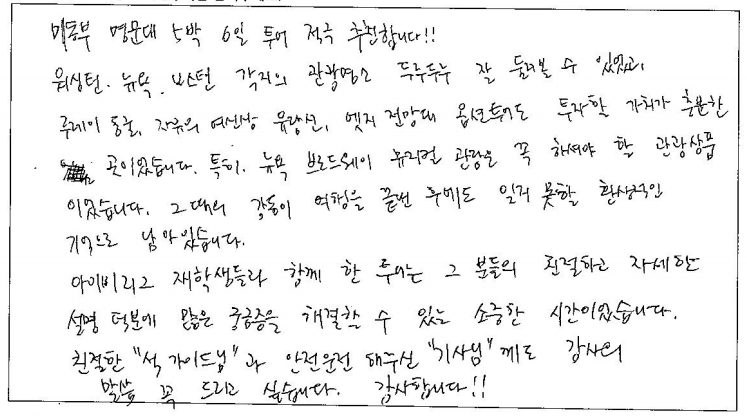 미동부 명문대 5박 6일 투어 적극 추천합니다!!
워싱턴. 뉴욕. 보스턴 각지의 관광명소 두루두루 잘 둘러볼 수 있었고,
루레이 동굴, 자유의 여신상 유람선, 엣지 전망대 옵션투어도 투자할 가치가 충분한
곳이었습니다. 특히, 뉴욕 브로드웨이 뮤지컬 관람은 꼭 하셔야 할 관광상품
이었습니다. 그때의 감동이 여정을 끝낸 후에도 잊지 못할 환상적인
기억으로 남아있습니다.
아이비리그 재학생들과 함께 한 투어는 그 분들의 친절하고 자세한
설명 덕분에 많은 궁금증을 해결할 수 있는 소중한 시간이었습니다.
친절한 "석 가이드님"과 안전운전 해주신 "기사님"께도 감사의
말씀 꼭 드리고 싶습니다. 감사합니다!!